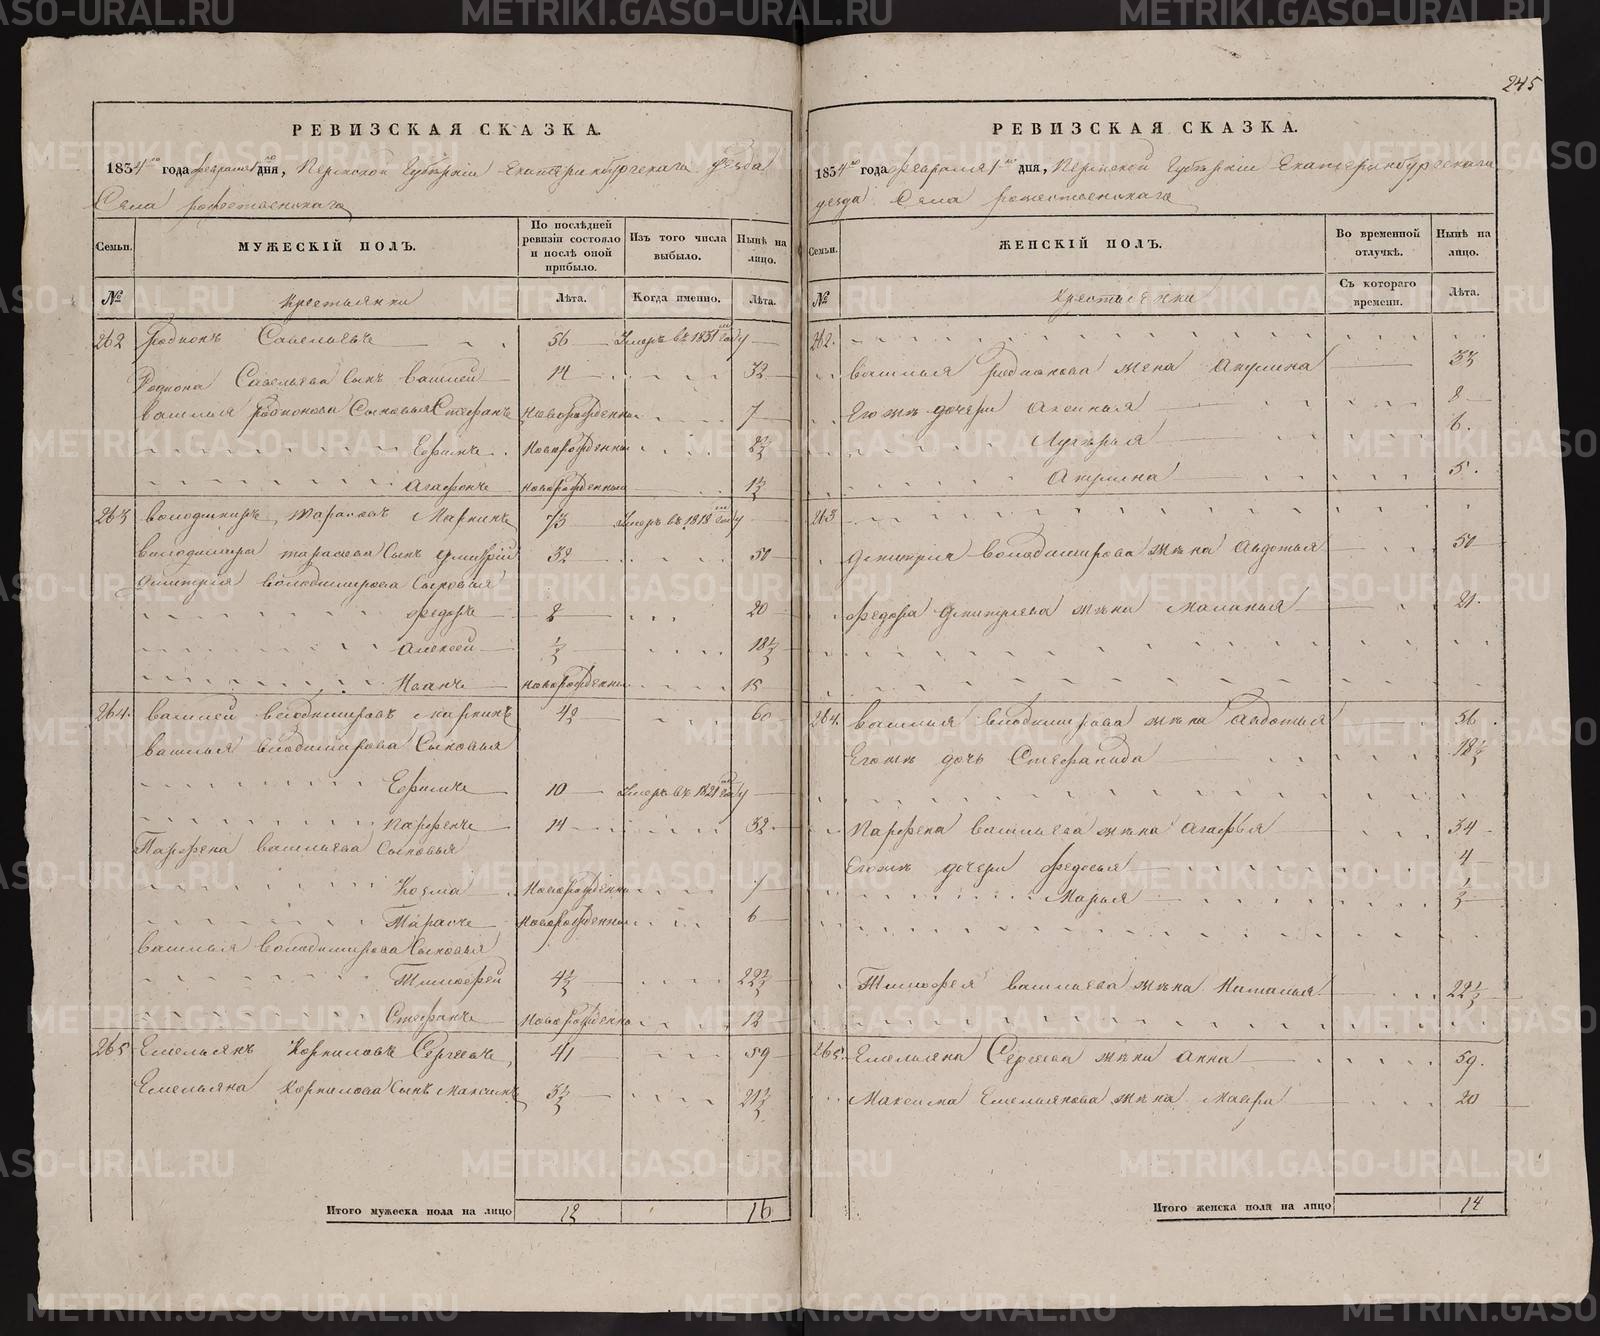 245
РЕВИЗСКАЯ СКАЗКА.
1834го года февраля 1го дня, Пермской Губернiи Екатеринбургскаго уезда
Села рожественскаго
Семьи. МУЖЕСКІЙ ПОЛЪ. По послѣдней ревизіи состояло и послѣ оной прибыло. Изъ того числа выбыло. Нынѣ на лицо.
№ Крестьянки Лѣта. Когда именно. Лѣта.
262 Родионъ Савельевъ 56 Умеръ въ 1831м году
Родиона Савельева Сынъ василей 14 32
василья Родионова Сыновья Стефанъ Новорожденны 7
Ефимъ Новорожденны 2½
Агафонъ Новорожденный 1½
263 володимиръ тарасовъ Маркинъ 73 Умеръ въ 1818м году
володимира тарасова Сынъ дмитрiй 32 50
дмитрiя володимирова Сыновья
федоръ 2 20
Алексей ½ 18½
Иванъ новорожденны 15
264. василей володимировъ маркинъ 42 60
василья володимирова Сыновья
Ефимъ 10 Умеръ въ 1821м году
парфенъ 14 32
Парфена васильева Сыновья
Козма Новорожденны 7
Тарасъ Новорожденны 6
василья володимирова Сыновья
Тимофей 4½ 22½
Стефанъ Новорожденно 12
265 Емельянъ Корниловъ Сергеевъ 41 59
Емельяна Корнилова Сынъ Максимъ 3½ 21½
Итого мужеска пола на лицо 12 16
РЕВИЗСКАЯ СКАЗКА.
1834го года февраля 1го дня, Пермской Губернiи Екатеринбургскаго
уезда Села рожественскаго
Семьи. ЖЕНСКІЙ ПОЛЪ. Во временной отлучкѣ. Нынѣ на лицо.
№ Крестьянки Съ котораго времени. Лѣта.
262.
василья Родионова жена Акулина 33
Егожъ дочери Аксинья 8
Лукерья 6.
Акулина 5.
263
дмитрiя володимирова жена Авдотья 50
федора дмитриева жена Маланья 21.
264.
василья володимирова жена Авдотья 56.
Егожъ дочь Стефанида 18½
Парфена васильева жена Агафья 34
Егожъ дочери федосья 4
Марья ½
Тимофея васильева жена Наталья 22½
265. Емельяна Сергеева жена Анна 59.
Максима Емельянова жена Мавра 20
Итого женска пола на лицо 14
METRIKI.GASO-URAL.RU